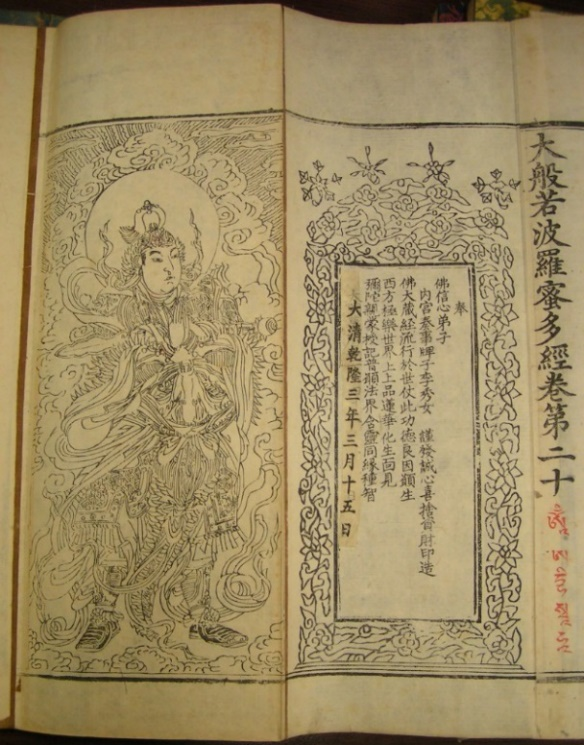 大般若波羅蜜多經卷第二十
奉
佛信心弟子
內宮叅事牌子李秀女 謹發誠心喜捨資財印造
佛大藏經流行於世仗此功德良因願生
西方極樂世界上上品蓮華化生面見
彌陁親蒙授記普願法界含靈同緣種智
大清乾隆三年三月十五日